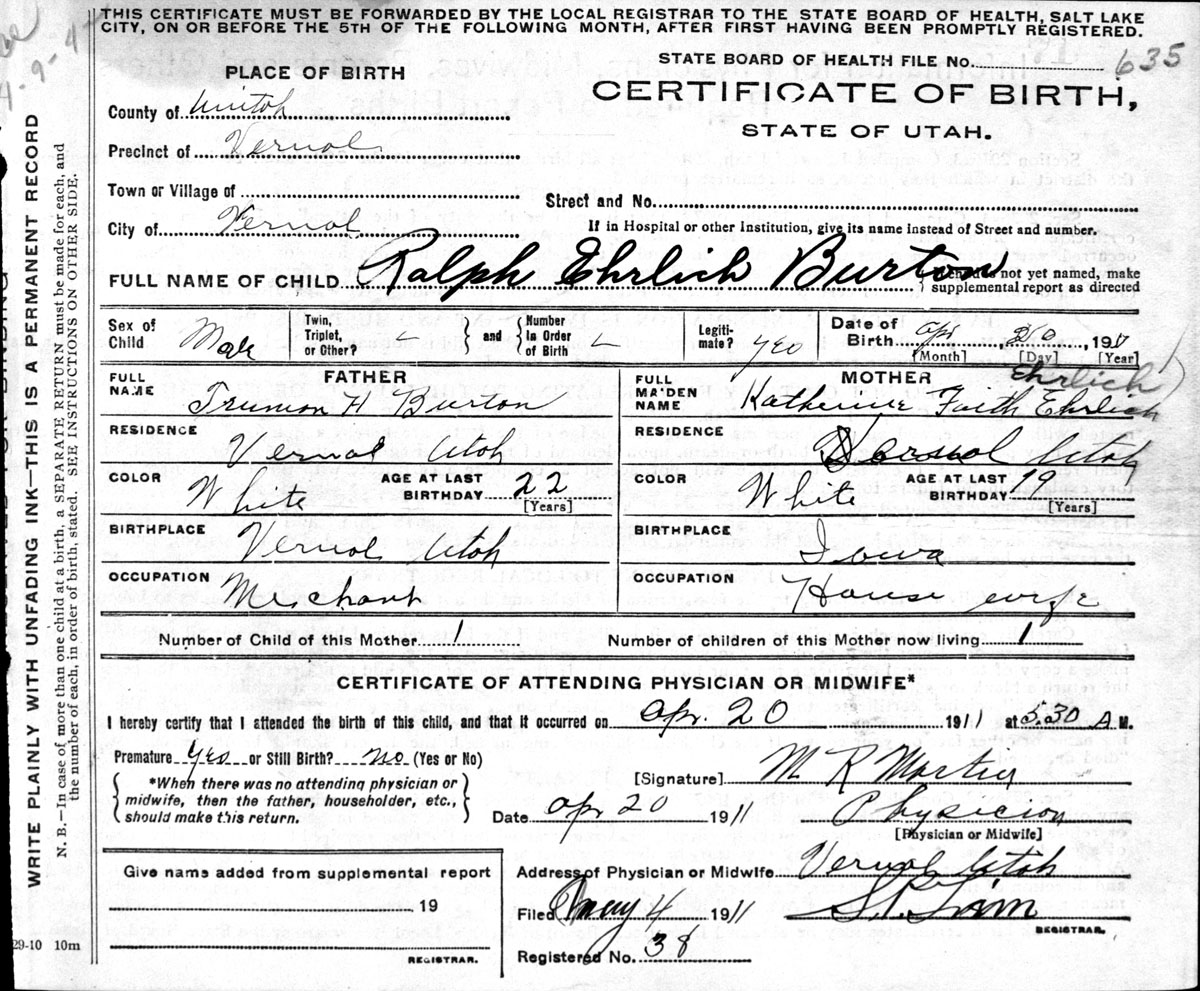 THIS CERTIFICATE MUST BE FORWARDED BY THE LOCAL REGISTRAR TO THE STATE BOARD OF HEALTH, SALT LAKE
CITY, ON OR BEFORE THE 5TH OF THE FOLLOWING MONTH, AFTER FIRST HAVING BEEN PROMPTLY REGISTERED.
STATE BOARD OF HEALTH FILE No. 635
PLACE OF BIRTH
CERTIFICATE OF BIRTH,
STATE OF UTAH.
County of Uintah
Precinct of Vernal
Town or Village of
Street and No.
City of Vernal
If in Hospital or other Institution, give its name instead of Street and number.
FULL NAME OF CHILD Ralph Ehrlich Burton
If child is not yet named, make
supplemental report as directed
Sex of Child Male
Twin, Triplet, or Other?
and
Number in Order of Birth
Legiti-mate? yes
Date of Birth Apr 20, 1911
[Month] [Day] [Year]
FATHER
FULL NAME Truman H Burton
RESIDENCE Vernal Utah
COLOR White AGE AT LAST BIRTHDAY 22 [Years]
BIRTHPLACE Vernal Utah
OCCUPATION Merchant
MOTHER
Ehrlich
FULL MAIDEN NAME Katherine Faith Ehrlich
RESIDENCE Vernal Utah
COLOR White AGE AT LAST BIRTHDAY 19 [Years]
BIRTHPLACE Iowa
OCCUPATION House wife
Number of Child of this Mother 1 Number of children of this Mother now living 1
CERTIFICATE OF ATTENDING PHYSICIAN OR MIDWIFE*
I hereby certify that I attended the birth of this child, and that it occurred on Apr. 20 1911 at 3.30 A M.
Premature Yes or Still Birth? No (Yes or No)
*When there was no attending physician or
midwife, then the father, householder, etc.,
should make this return.
[Signature] M K
Date Apr 20 1911 Physician
[Physician or Midwife]
Give name added from supplemental report
19
REGISTRAR.
Address of Physician or Midwife Vernal Utah
Filed May 4 1911
REGISTRAR.
Registered No. 38
WRITE PLAINLY WITH UNFADING INK—THIS IS A PERMANENT RECORD
N. B.—In case of more than one child at a birth, a SEPARATE RETURN must be made for each, and
the number of each, in order of birth, stated. SEE INSTRUCTIONS ON OTHER SIDE.
29-10 10m